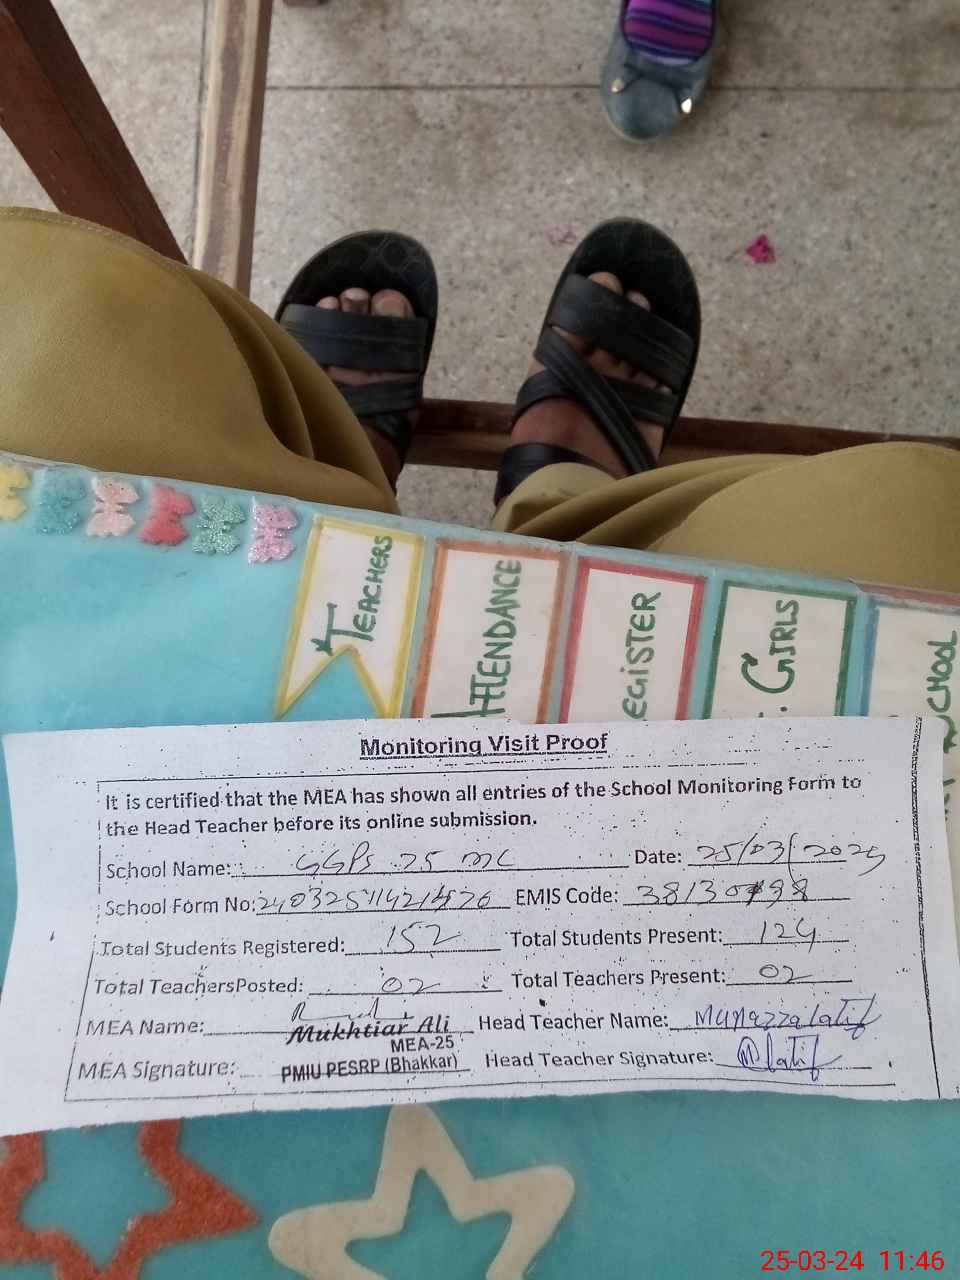 TEACHERS
ATTENDANCE
REGISTER
G. GIRLS
SCHOOL
Monitoring Visit Proof
It is certified that the MEA has shown all entries of the School Monitoring Form to
the Head Teacher before its online submission.
School Name: GGPS 25 ML Date: 25/03/2024
School Form No: EMIS Code:
Total Students Registered: 152 Total Students Present: 124
Total TeachersPosted: 02 Total Teachers Present: 02
MEA Name: Mukhtiar Ali Head Teacher Name: Munazza latif
MEA-25
MEA Signature: PMIU PESRP (Bhakkar) Head Teacher Signature: M latif
25-03-24 11:46